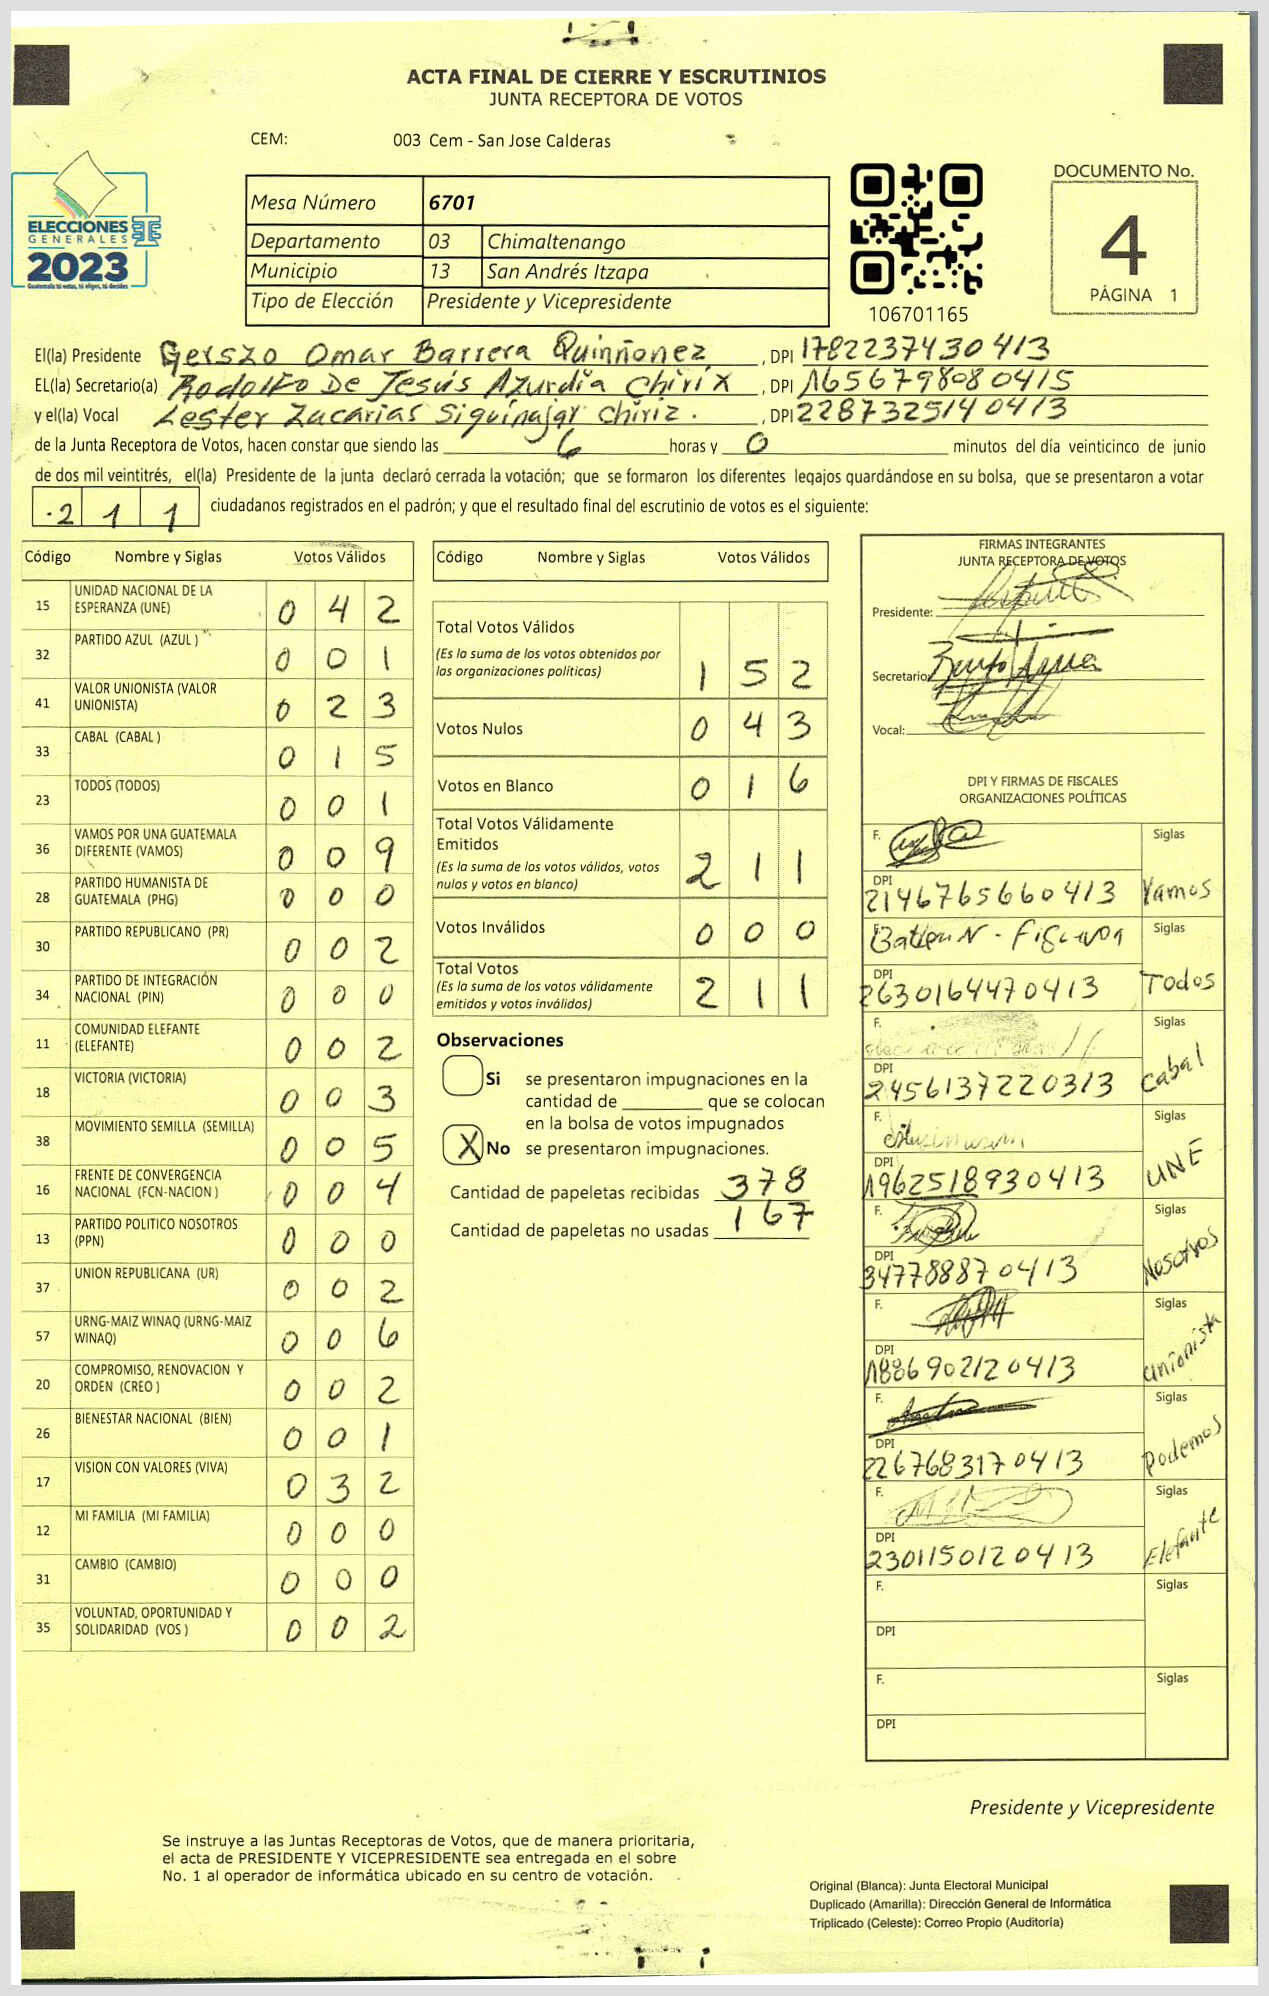 ACTA FINAL DE CIERRE Y ESCRUTINIOS
JUNTA RECEPTORA DE VOTOS
CEM: 003 Cem - San Jose Calderas
ELECCIONES
GENERALES
2023
Guatemala tú votas, tú eliges, tú decides
Mesa Número 6701
Departamento 03 Chimaltenango
Municipio 13 San Andrés Itzapa
Tipo de Elección Presidente y Vicepresidente
106701165
DOCUMENTO No.
4
PÁGINA 1
El(la) Presidente Gerszo Omar Barrera Quinñonez, DPI 1782237430413
EL(la) Secretario(a) Rodolfo De Jesús Azurdia Chirix, DPI 1656798080415
y el(la) Vocal Lester Zacarias Siquinajay Chiriz., DPI 2287325140413
de la Junta Receptora de Votos, hacen constar que siendo las 6 horas y 0 minutos del día veinticinco de junio
de dos mil veintitrés, el(la) Presidente de la junta declaró cerrada la votación; que se formaron los diferentes legajos guardándose en su bolsa, que se presentaron a votar
211 ciudadanos registrados en el padrón; y que el resultado final del escrutinio de votos es el siguiente:
Código Nombre y Siglas Votos Válidos
15 UNIDAD NACIONAL DE LA ESPERANZA (UNE) 0 4 2
32 PARTIDO AZUL (AZUL ) 0 0 1
41 VALOR UNIONISTA (VALOR UNIONISTA) 0 2 3
33 CABAL (CABAL ) 0 1 5
23 TODOS (TODOS) 0 0 1
36 VAMOS POR UNA GUATEMALA DIFERENTE (VAMOS) 0 0 9
28 PARTIDO HUMANISTA DE GUATEMALA (PHG) 0 0 0
30 PARTIDO REPUBLICANO (PR) 0 0 2
34 PARTIDO DE INTEGRACIÓN NACIONAL (PIN) 0 0 0
11 COMUNIDAD ELEFANTE (ELEFANTE) 0 0 2
18 VICTORIA (VICTORIA) 0 0 3
38 MOVIMIENTO SEMILLA (SEMILLA) 0 0 5
16 FRENTE DE CONVERGENCIA NACIONAL (FCN-NACION ) 0 0 4
13 PARTIDO POLITICO NOSOTROS (PPN) 0 0 0
37 UNION REPUBLICANA (UR) 0 0 2
57 URNG-MAIZ WINAQ (URNG-MAIZ WINAQ) 0 0 6
20 COMPROMISO, RENOVACION Y ORDEN (CREO ) 0 0 2
26 BIENESTAR NACIONAL (BIEN) 0 0 1
17 VISION CON VALORES (VIVA) 0 3 2
12 MI FAMILIA (MI FAMILIA) 0 0 0
31 CAMBIO (CAMBIO) 0 0 0
35 VOLUNTAD, OPORTUNIDAD Y SOLIDARIDAD (VOS ) 0 0 2
Código Nombre y Siglas Votos Válidos
Total Votos Válidos
(Es la suma de los votos obtenidos por las organizaciones políticas) 1 5 2
Votos Nulos 0 4 3
Votos en Blanco 0 1 6
Total Votos Válidamente Emitidos
(Es la suma de los votos válidos, votos nulos y votos en blanco) 2 1 1
Votos Inválidos 0 0 0
Total Votos
(Es la suma de los votos válidamente emitidos y votos inválidos) 2 1 1
Observaciones
Si se presentaron impugnaciones en la
cantidad de ________ que se colocan
en la bolsa de votos impugnados
X No se presentaron impugnaciones.
Cantidad de papeletas recibidas 378
Cantidad de papeletas no usadas 167
FIRMAS INTEGRANTES
JUNTA RECEPTORA DE VOTOS
Presidente:
Secretario:
Vocal:
DPI Y FIRMAS DE FISCALES
ORGANIZACIONES POLÍTICAS
F. Siglas
DPI 2146765660413 Vamos
F. Siglas
DPI 2630164470413 Todos
F. Siglas
DPI 2456137220313 Cabal
F. Siglas
DPI 1962518930413 UNE
F. Siglas
DPI 347788870413 Nosotros
F. Siglas
DPI 1886902120413 Unionista
F. Siglas
DPI 2267683170413 Podemos
F. Siglas
DPI 2301150120413 Elefante
F. Siglas
DPI
F. Siglas
DPI
Presidente y Vicepresidente
Se instruye a las Juntas Receptoras de Votos, que de manera prioritaria,
el acta de PRESIDENTE Y VICEPRESIDENTE sea entregada en el sobre
No. 1 al operador de informática ubicado en su centro de votación.
Original (Blanca): Junta Electoral Municipal
Duplicado (Amarilla): Dirección General de Informática
Triplicado (Celeste): Correo Propio (Auditoría)